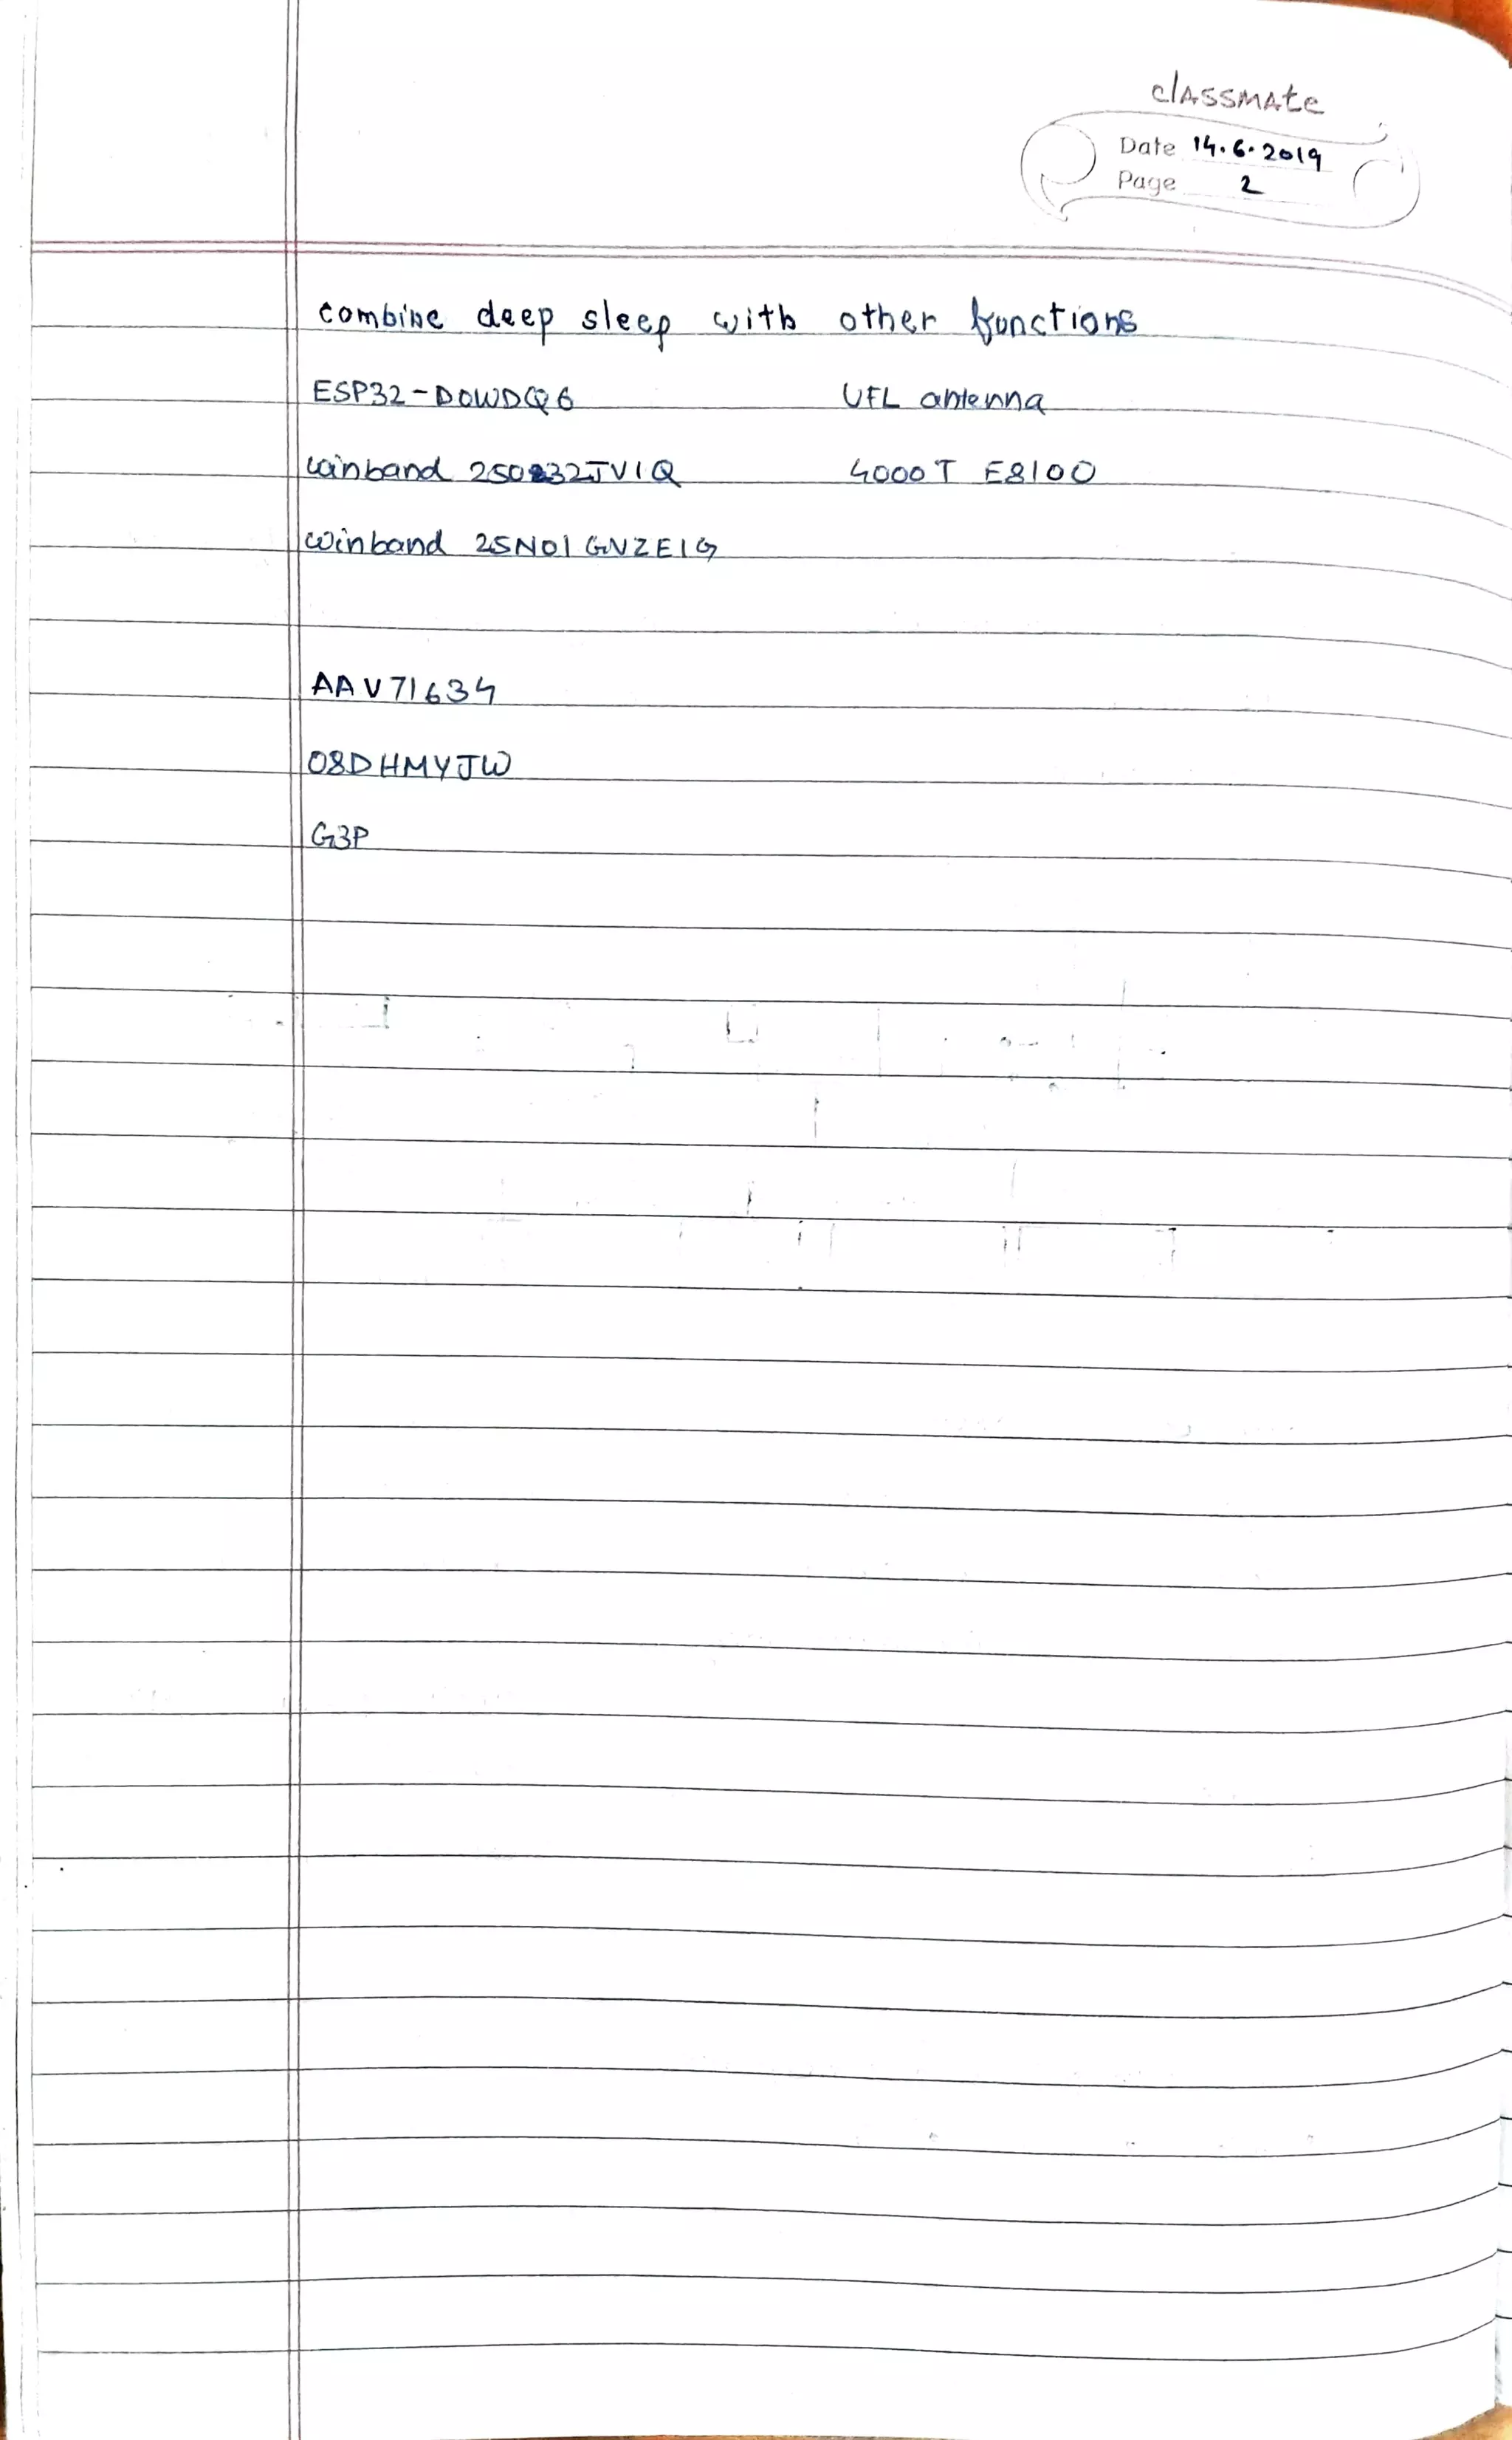 classmate
Date 14.6.2019
Page 2
combine deep sleep with other functions
ESP32-DOWDQ6 UFL antenna
winband 250232JVIQ 4000T E8100
winband 25N01GVZEIG
AAV71634
08DHMYJW
G3P